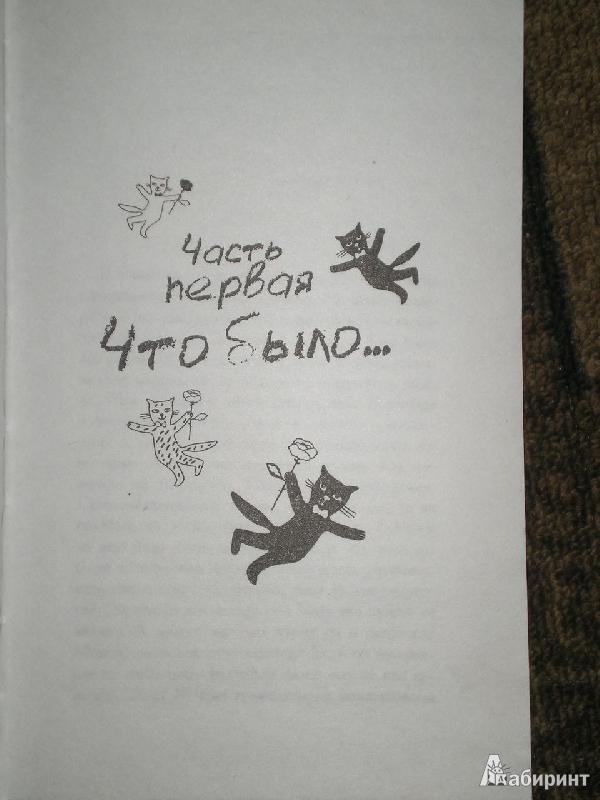 Часть
первая
Что было...
Лабиринт